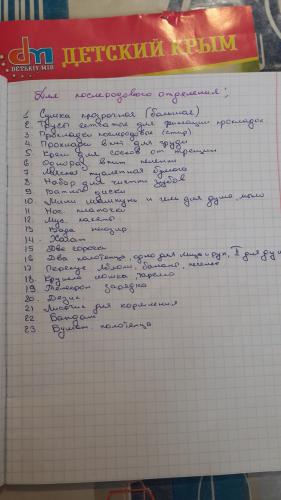 dm
ДЕТСКІЙ МІР
ДЕТСКИЙ КРЫМ
Для послеродового отделения:
1. Сумка прозрачная (большая)
2. Трусы сетчатые для фиксации прокладок
3. Прокладки послеродовые (стер)
4. Прокладки впит для груди
5. Крем для сосков от трещин
6. Однораз впит пеленки
7. Мягкая туалетная бумага
8. Набор для чистки зубов
9. Ватные диски
10. Мини шампунь и гель для душа, мыло
11. Нос. платочки
12. Мус. пакеты
13. Вода негазир
14. Халат
15. Две сорочки
16. Два полотенца, одно для лица и рук, для душ
17. Перекус яблоки, бананы, печенье
18. Кружка ложка тарелка
19. Телефон зарядка
20. Дезик.
21. для кормления
22. Бандаж
23. Бумаж. полотенца